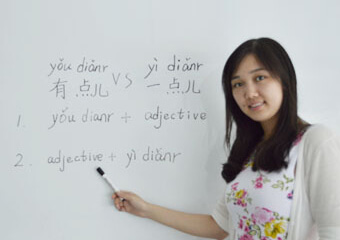 yǒu diǎnr VS yì diǎnr
有点儿 一点儿
1. yǒu dianr + adjective
2. adjective + yì diǎnr